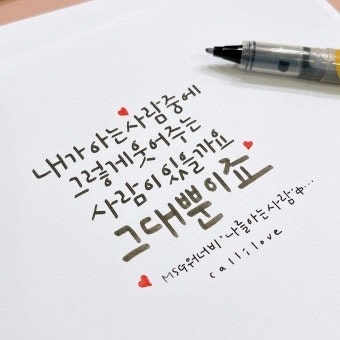 내가아는사람중에
그렇게웃어주는
사람이 있을까요
그대뿐이죠
MSG워너비 '나를아는사람' 中...
callilove